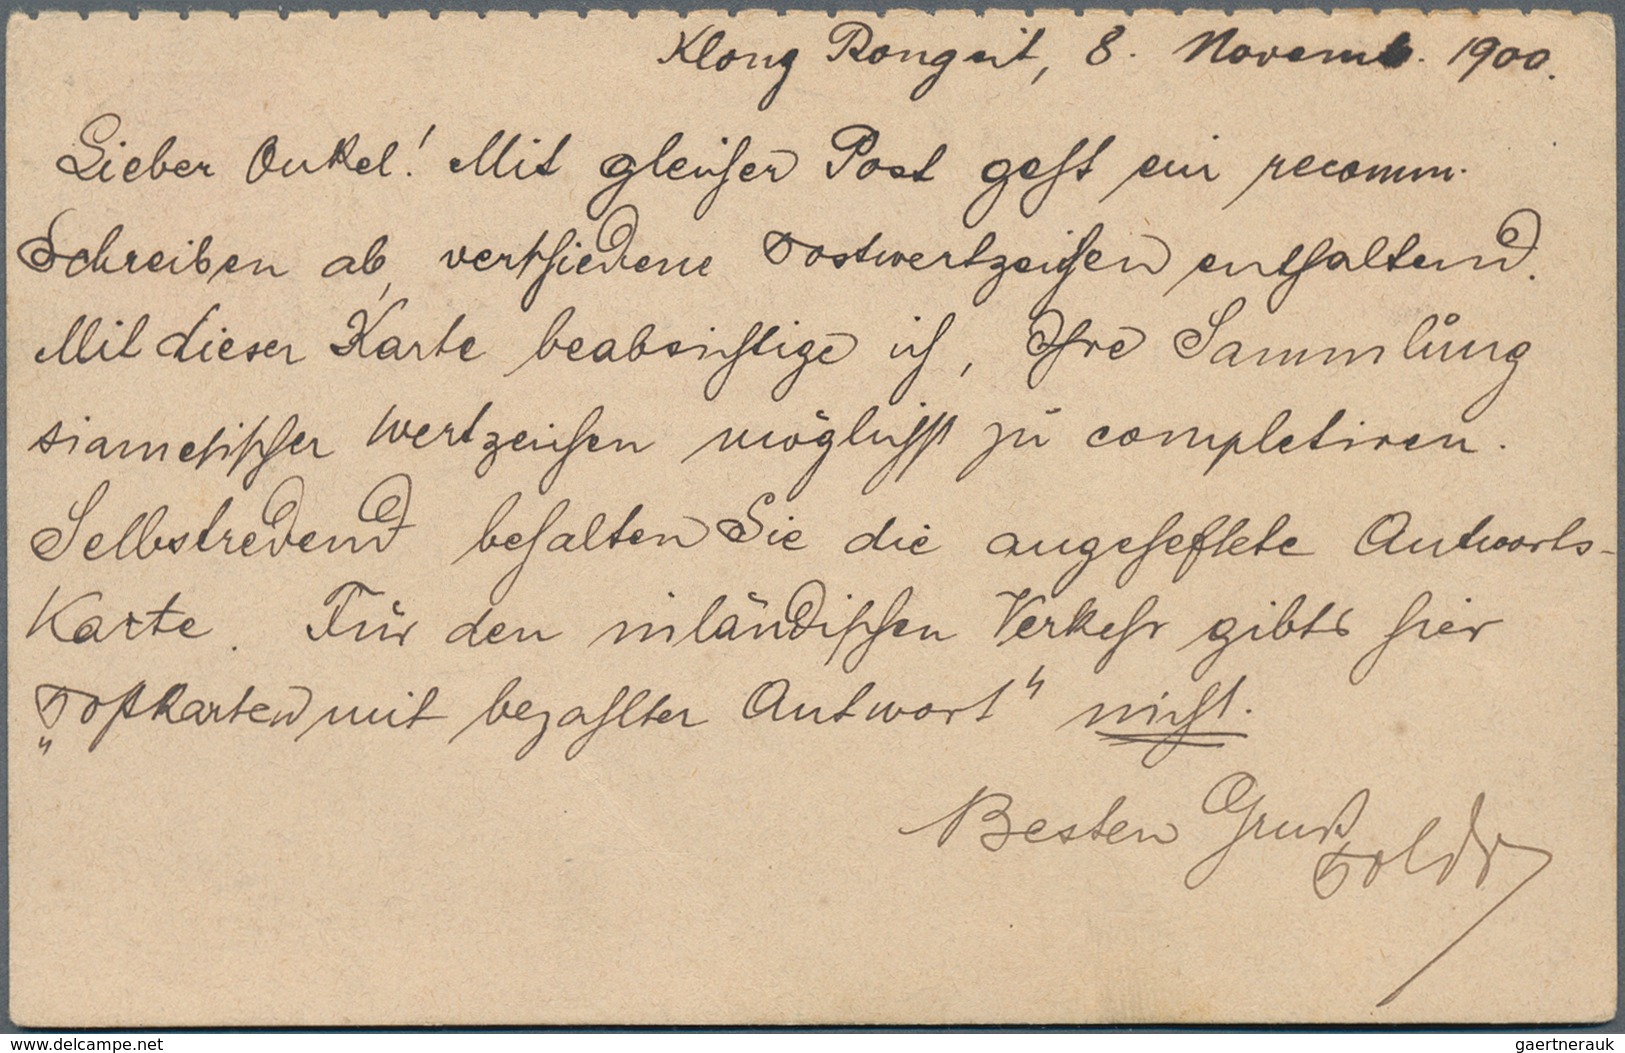 Klong Rangsit, 8. Novemb. 1900.
Lieber Onkel! Mit gleicher Post geht ein recomm.
Schreiben ab, verschiedene Postwertzeichen enthaltend.
Mit dieser Karte beabsichtige ich, Ihre Sammlung
siamesischer Wertzeichen möglichst zu completiren.
Selbstredend behalten Sie die angeheftete Antworts-
Karte. Für den inländischen Verkehr gibts hier
„Postkarten mit bezahlter Antwort" nicht.
Besten Gruß
www.delcampe.net
gaertnerauk